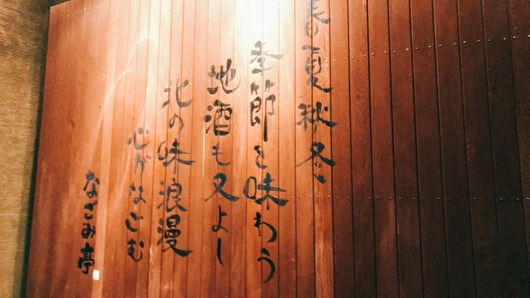 春夏秋冬
季節を味わう
地酒も又よし
北の味浪漫
心がなごむ
なごみ亭